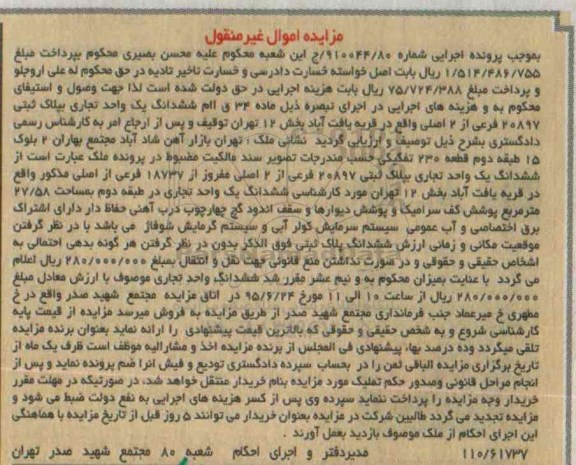 مزایده اموال غیرمنقول
بموجب پرونده اجرایی شماره ۹۱۰۰۴۴/۸۰/ج این شعبه محکوم علیه محسن بصیری محکوم بپرداخت مبلغ
۱/۵۱۴/۴۸۶/۷۵۵ ریال بابت اصل خواسته خسارت دادرسی و خسارت تاخیر تادیه در حق محکوم له علی اروجلو
و پرداخت مبلغ ۷۵/۷۲۴/۳۸۸ ریال بابت هزینه اجرایی در حق دولت شده است لذا جهت وصول و استیفای
محکوم به و هزینه های اجرایی در اجرای تبصره ذیل ماده ۳۴ ق اام ششدانگ یک واحد تجاری بپلاک ثبتی
۲۰۸۹۷ فرعی از ۲ اصلی واقع در قریه یافت آباد بخش ۱۲ تهران توقیف و پس از ارجاع امر به کارشناس رسمی
دادگستری بشرح ذیل توصیف و ارزیابی گردید نشانی ملک : تهران بازار آهن شاد آباد مجتمع بهاران ۲ بلوک
۱۵ طبقه دوم قطعه ۲۳۰ تفکیکی حسب مندرجات تصویر سند مالکیت مضبوط در پرونده ملک عبارت است از
ششدانگ یک واحد تجاری بپلاک ثبتی ۲۰۸۹۷ فرعی از ۲ اصلی مفروز از ۱۸۷۳۷ فرعی از اصلی مذکور واقع
در قریه یافت آباد بخش ۱۲ تهران مورد کارشناسی ششدانگ یک واحد تجاری در طبقه دوم بمساحت ۲۷/۵۸
مترمربع پوشش کف سرامیک و پوشش دیوارها و سقف اندود گچ چهارچوب درب آهنی حفاظ دار دارای اشتراک
برق اختصاصی و آب عمومی سیستم سرمایش کولر آبی و سیستم گرمایش شوفاژ می باشد با در نظر گرفتن
موقعیت مکانی و زمانی ارزش ششدانگ پلاک ثبتی فوق الذکر بدون در نظر گرفتن هر گونه بدهی احتمالی به
اشخاص حقیقی و حقوقی و در صورت نداشتن منع قانونی جهت نقل و انتقال بمبلغ ۲۸۰/۰۰۰/۰۰۰ ریال اعلام
می گردد با عنایت بمیزان محکوم به و نیم عشر مقرر شد ششدانگ واحد تجاری موصوف با ارزش معادل مبلغ
۲۸۰/۰۰۰/۰۰۰ ریال از ساعت ۱۰ الی ۱۱ مورخ ۹۵/۶/۲۴ در اتاق مزایده مجتمع شهید صدر واقع در خ
مطهری خ میرعماد جنب فرمانداری مجتمع شهید صدر از طریق مزایده به فروش میرسد مزایده از قیمت پایه
کارشناسی شروع و به شخص حقیقی و حقوقی که بالاترین قیمت پیشنهادی را ارائه نماید بعنوان برنده مزایده
تلقی میگردد وده درصد بها، پیشنهادی فی المجلس از برنده مزایده اخذ و مشارالیه موظف است ظرف یک ماه از
تاریخ برگزاری مزایده الباقی ثمن را در بحساب سپرده دادگستری تودیع و فیش آنرا ضم پرونده نماید و پس از
انجام مراحل قانونی وصدور حکم تملیک مورد مزایده بنام خریدار منتقل خواهد شد، در صورتیکه در مهلت مقرر
خریدار وجه مزایده را پرداخت ننماید سپرده وی پس از کسر هزینه های اجرایی به نفع دولت ضبط می شود و
مزایده تجدید می گردد طالبین شرکت در مزایده بعنوان خریدار می توانند ۵ روز قبل از تاریخ مزایده با هماهنگی
این اجرای احکام از ملک موصوف بازدید بعمل آورند .
۱۱۰/۶۱۷۳۷ مدیردفتر و اجرای احکام شعبه ۸۰ مجتمع شهید صدر تهران